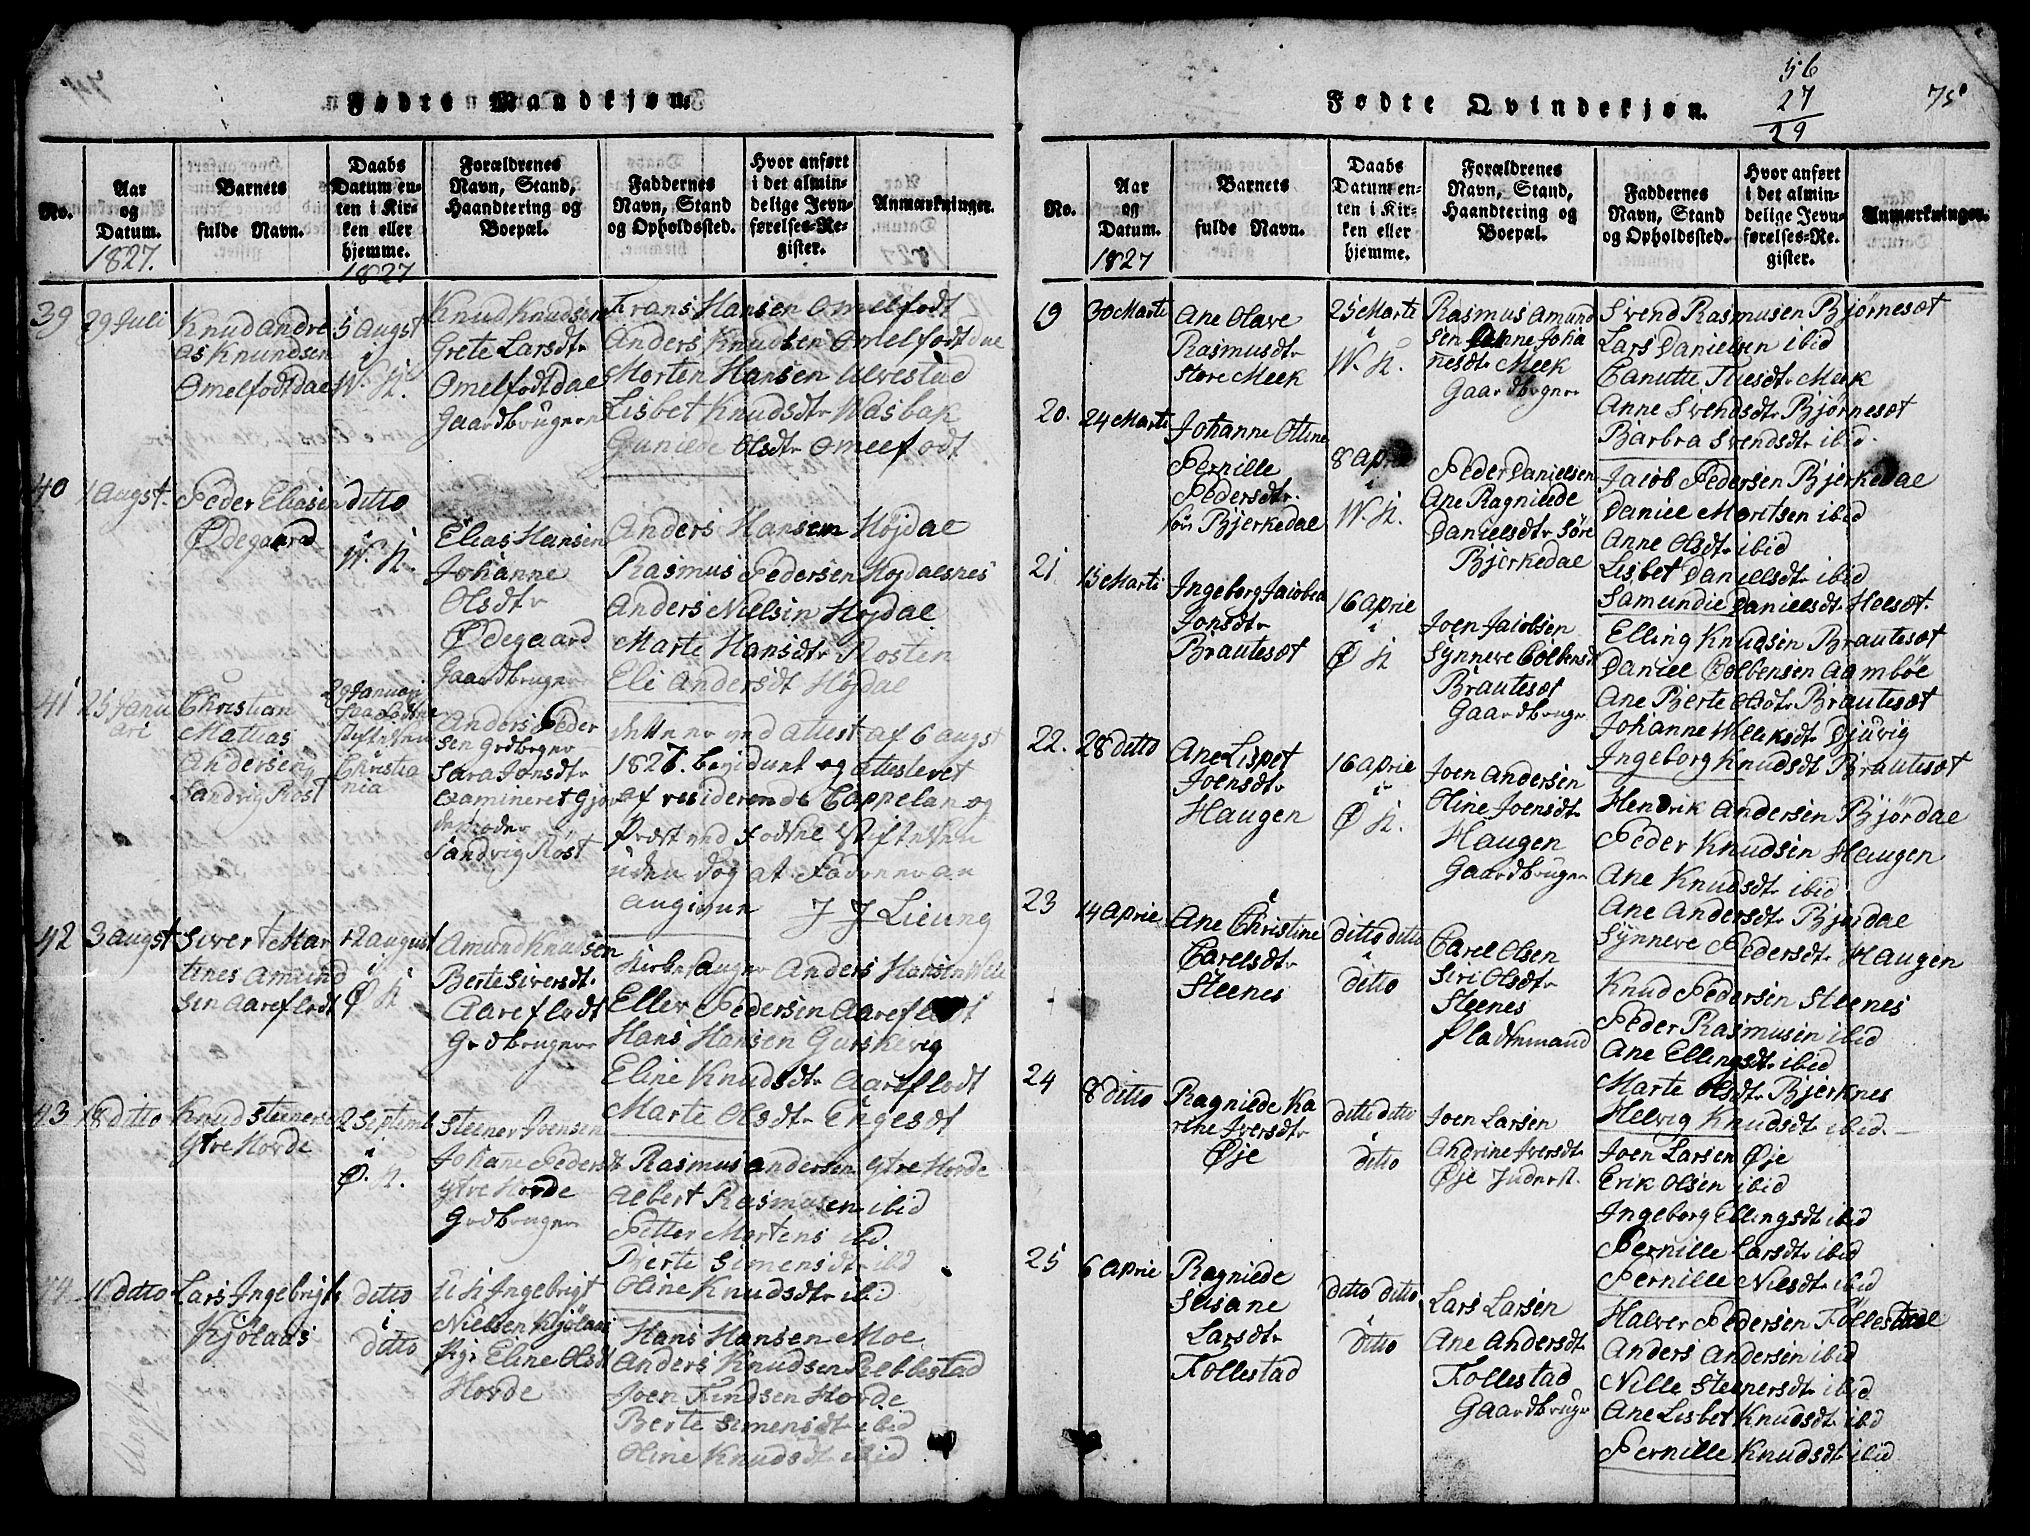 Fødte Mandkjøn.
No.
Aar
og
Datum.
1827.
Barnets
fulde Navn.
Daabs
Datum en-
ten i Kir-
ken eller
hjemme.
1827
Forældrenes
Navn, Stand,
Haandtering og
Boepæl.
Faddernes
Navn, Stand
og Opholdssted.
Hvor anført
i det almin-
delige Jevn-
førelses-Re-
gister.
Anmærkninger.
39
29 Juli
Knud Andre
as Knudsen
Omelfodtdal
5 Augst
i
W. K.
Knud Knudsen
Grete Larsdtr
Omelfodtdal
Gaardbrugere
Frans Hansen Omelfodt
Anders Knudsen Omelfodtdal
Morten Hansen Ulvestad
Lisbet Knudsdtr Aasbak
Gunilde Olsdtr Omelfodt
40
1 Augst.
Peder Eliasen
Ødegaard
ditto
i
W. K.
Elias Hansen
Johanne
Olsdtr
Ødegaard
Gaardbruger
Anders Hansen Højdal
Rasmus Pedersen Højdalsnes
Anders Nielsin Højdal
Marte Hansdtr Rosten
Eli Andersdt Højdal
41
25 Janu
ari
Christian
Matias
Andersen
Sandvig Røst
29 Januari
paa Fødsels
stiftelsen
i
Christia
nia
Anders Peder
sen Grdbrger
Sara Jonsdtr
examineret Gjor
demoder
Sandvig Røst
dette er ved attest af 6 Augst
1827 bevidnet og attesteret
af residerende Cappelan og
Præst ved Fødsels Stiftelsen
uden dog at Fadderne er an
angivne J J Lieung
42
3 Augst
Sivert Mar
tines Amund
sin Aareflodt
12 August
i
Ø K
Amund Knudsen
Berte Siversdtr.
Aareflodt
Grdbruger
Kirkesanger Anders Hansin
Eller Pedersin Aareflodt
Hans Hansen Gurskevig
Eline Knudsdtr Aareflodt
Marte Olsdtr Engesdt
43
18 ditto
Knud Steener
Ytre Horde
2 Septemb
i
Ø. K.
Steener Joensen
Johane Peders
Ytre Horde
Grdbruger
Rasmus Andersen Ytre Horde
Albert Rasmusen ibid
Petter Mortens ibd
Berte Simensdtr ibd
Oline Knudsdtr ibid
44
11 ditto
Lars Ingebrigts
Kjølaas
ditto
i
ditto
Ingebrigt
Nielsen Kjølaas
Pge Eline Olsdt
Horde
Hans Hansen Moe
Anders Knudsen Rebbestad
Joen Findsen Horde
Berte Simensdtr ibid
Oline Knudsdt ibid
Fødte Qvindekjøn.
56
27
29
75
No.
Aar
og
Datum.
1827
Barnets
fulde Navn.
Daabs
Datum en-
ten i Kir-
ken eller
hjemme.
Forældrenes
Navn, Stand,
Haandtering og
Boepæl.
Faddernes
Navn, Stand
og Opholdssted.
Hvor anført
i det almin-
delige Jevn-
førelses-Re-
gister.
Anmærkninger.
19
30 Marti
Ane Olave
Rasmusdtr
Støre Meek
25 Marti
i
W. K.
Rasmus Amund
sen Johanne Joha
nesdtr Meek
Gaardbrgere
Svend Rasmusen Bjørnesæt
Lars Danielsen ibid
Canutte Tuesdtr Meek
Anne Svendsdtr Bjørnesæt
Barbra Svendsdtr ibid
20.
24 Marti
Johanne Oline
Pernille
Pedersdtr.
Bjerkedal
8 April
i
W. K.
Peder Danielsen
Ane Ragnilde
Danielsdtr Søre
Bjerkedal
Jacob Pedersen Bjerkedal
Daniel Moritsen ibid
Anne Olsdtr ibid
Lisbet Danielsdtr ibid
Samundie Danielsdtr Helset.
21.
15 Marti
Ingeborg Jacobea
Jonsdtr
Brautesæt
16 April
i
Ø K
Joen Jacobsen
Synneve Colbensdt
Brautesæt
Gaardbruger
Elling Knudsin Brautesæt
Daniel Colbensen Aambøe
Ane Berte Olsdtr Brautesæt
Johanne Willeksdtr Djuvig
Ingeborg Knudsdt Brautesæt
22.
28 ditto
Ane Lispet
Joensdtr
Haugen
16 April
i
Ø K.
Joen Andersen
Oline Joensdtr
Haugen
Gaardbruger
Hendrik Andersen Bjørdal
Peder Knudsin Haugen
Ane Knudsdtr ibid
Ane Andersdtr Bjørdal
Synneve Pedersdtr Haugen
23
14 April
Ane Christine
Carelsdtr
Steenes
ditto ditto
i
ditto
Carel Olsen
Siri Olsdtr
Steenes
Pladsemand
Knud Pedersen Steenes
Peder Rasmusin ibid
Ane Ellingsdtr ibid
Marte Olsdtr Bjerknes
Helvig Knudsdtr ibid
24
8 ditto
Ragnilde Ka
rine Iversdtr
Øje
ditto ditto
i
ditto
Joen Larsen
Andrine Iversdtr
Øje Inderst.
Joen Larsen Øje
Erik Olsen ibid
Ingeborg Ellingsdt ibid
Pernille Larsdtr ibid
Pernille Nilsdtr ibid
25
6 April
Ragnilde
Susane
Larsdtr
Follestad
ditto ditto
i
ditto
Lars Larsen
Ane Andersdtr
Follestad
Gaardbruger
Halver Pedersen Follestad
Anders Andersen ibid
Nille Steenersdtr ibid
Ane Lisbet Knudsdt ibd
Pernille Knudsdt ibid